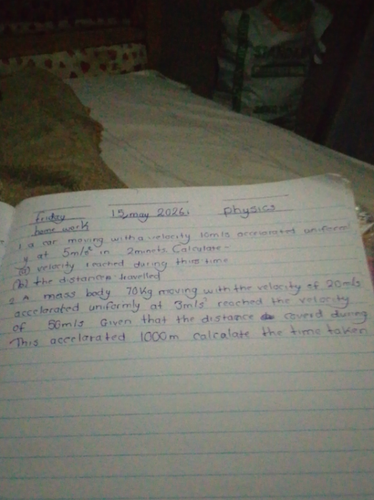 Friday 15, may 2026. physics
home work
1. a car moving with a velocity 10m/s accelerated uniformel
y at 5m/s² in 2minuts Calculate-
(a) velocity reached during this time
(b) the distance travelled
2. A mass body 70kg moving with the velocity of 20m/s
accelerated uniformly at 3m/s² reached the velocity
of 50m/s Given that the distance coverd during
This accelerated 1000m calcalate the time taken